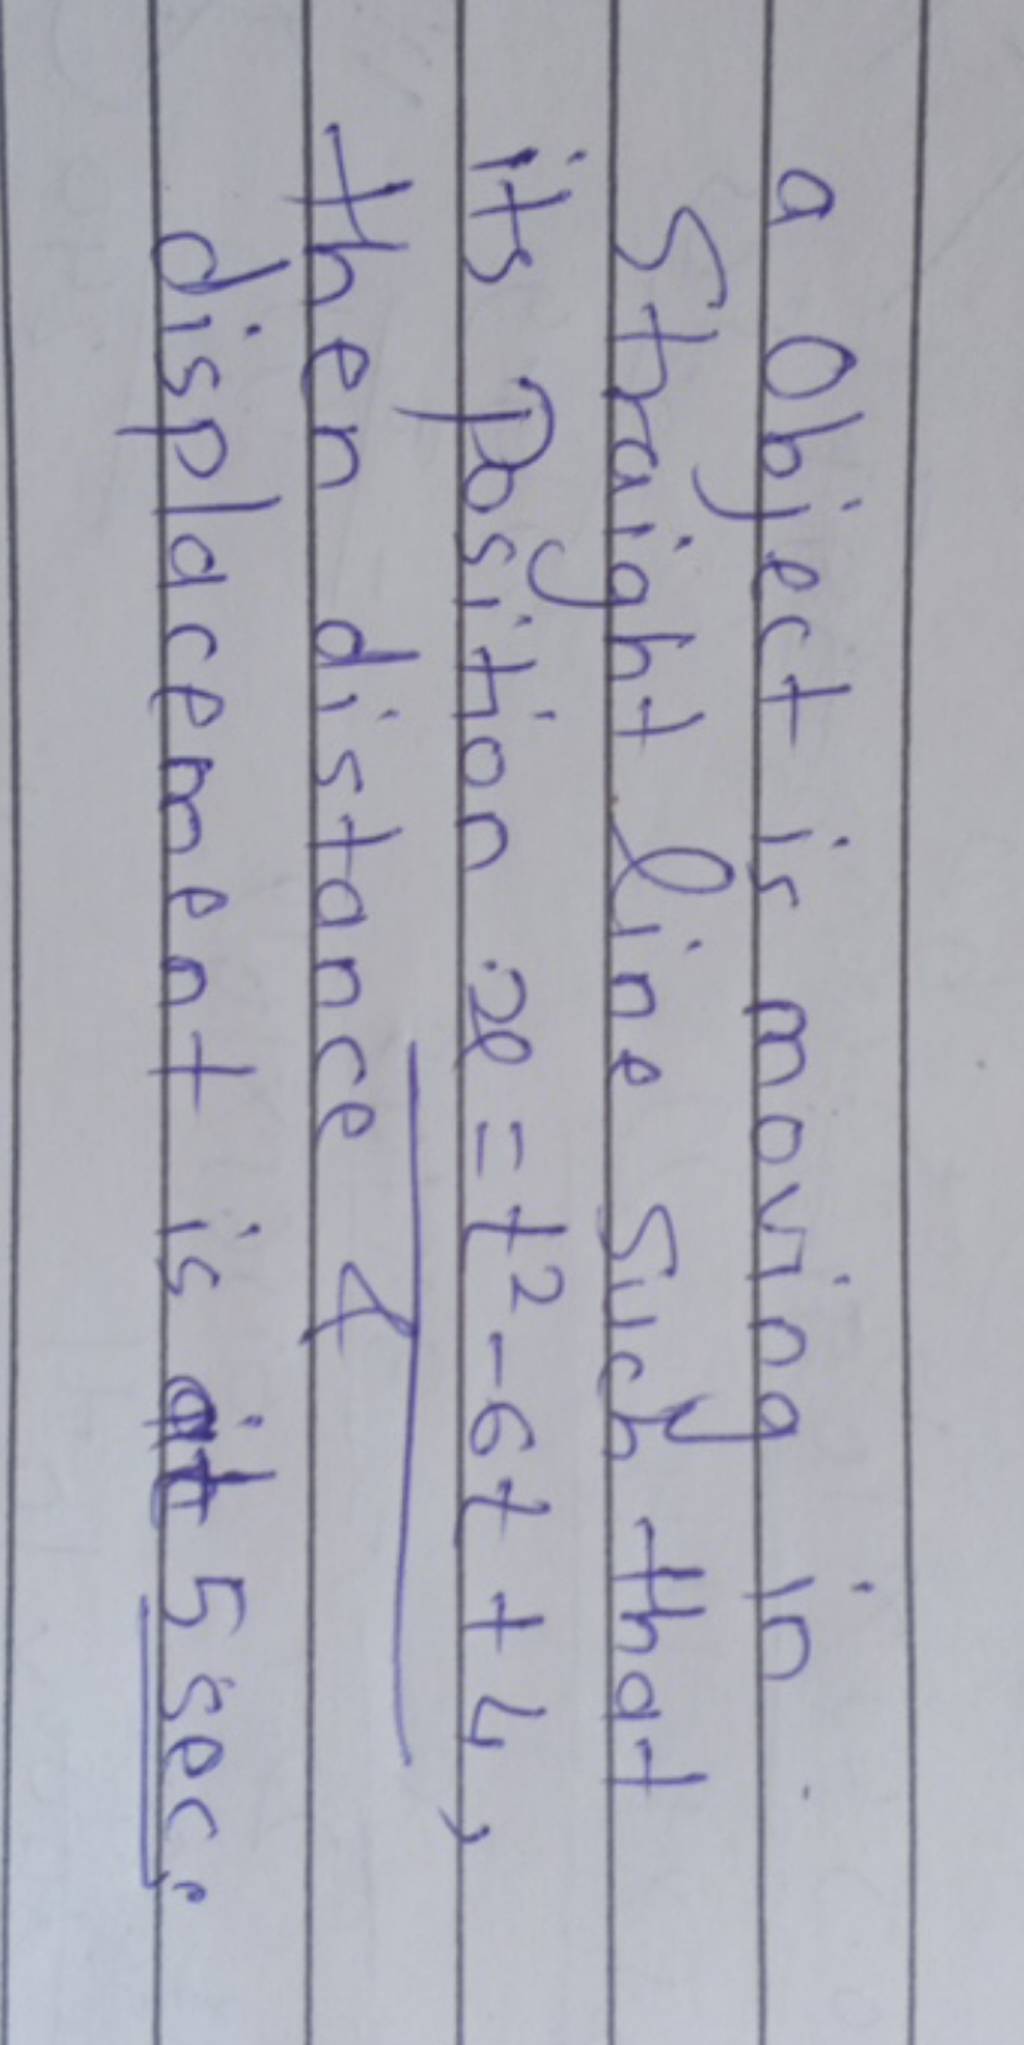 a Object is moving in
Straight line such that
its Position x = t² - 6t + 4,
then distance &
displacement is at 5 sec.